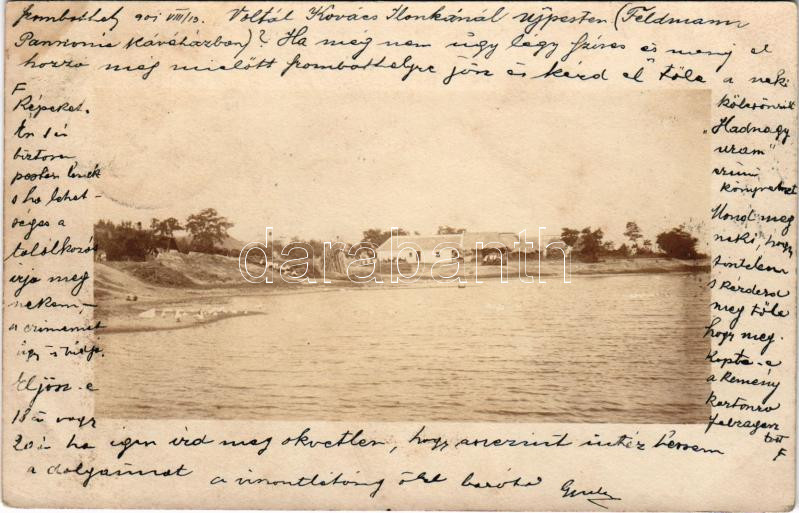 Szombathely 901 VIII/13. Voltál Kovács Ilonkánál Ujpesten (Feldmann
Pannonia Kávéházban)? Ha még nem úgy légy szíves és menj el
hozzá még mielőtt Szombathelyre jösz és kérd el tőle a neki
kölcsönzött
"Hadnagy
uram"
czimü
könyvemet
Mond meg
neki, hogy
tisztelem
s kérdezd
meg tőle
hogy meg-
kapta-e
a kemény
kartonra
felragasz
tott
F
F
Képeket.
Én 1én
biztosan
pesten leszek
s ha lehet-
séges a
találkozás
irja meg
nekem,
a czimemet
úgy is tudja.
Eljösz-e
18án vagy
20án ha igen ird meg okvetlen, hogy aszerint intézhessem
a dolgaimat
a viszontlátásig ölel barátod Gyula
darabanth.com